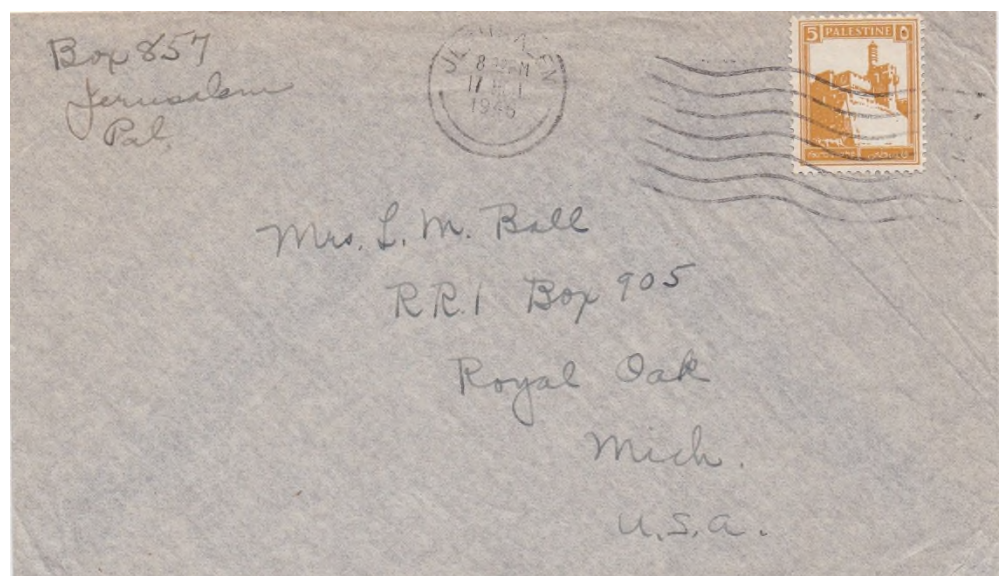 Box 857
Jerusalem
Pal.
JERUSALEM
8
17
1946
5 PALESTINE ٥
Mrs. L. M. Ball
R.R.1 Box 905
Royal Oak
Mich.
U.S.A.